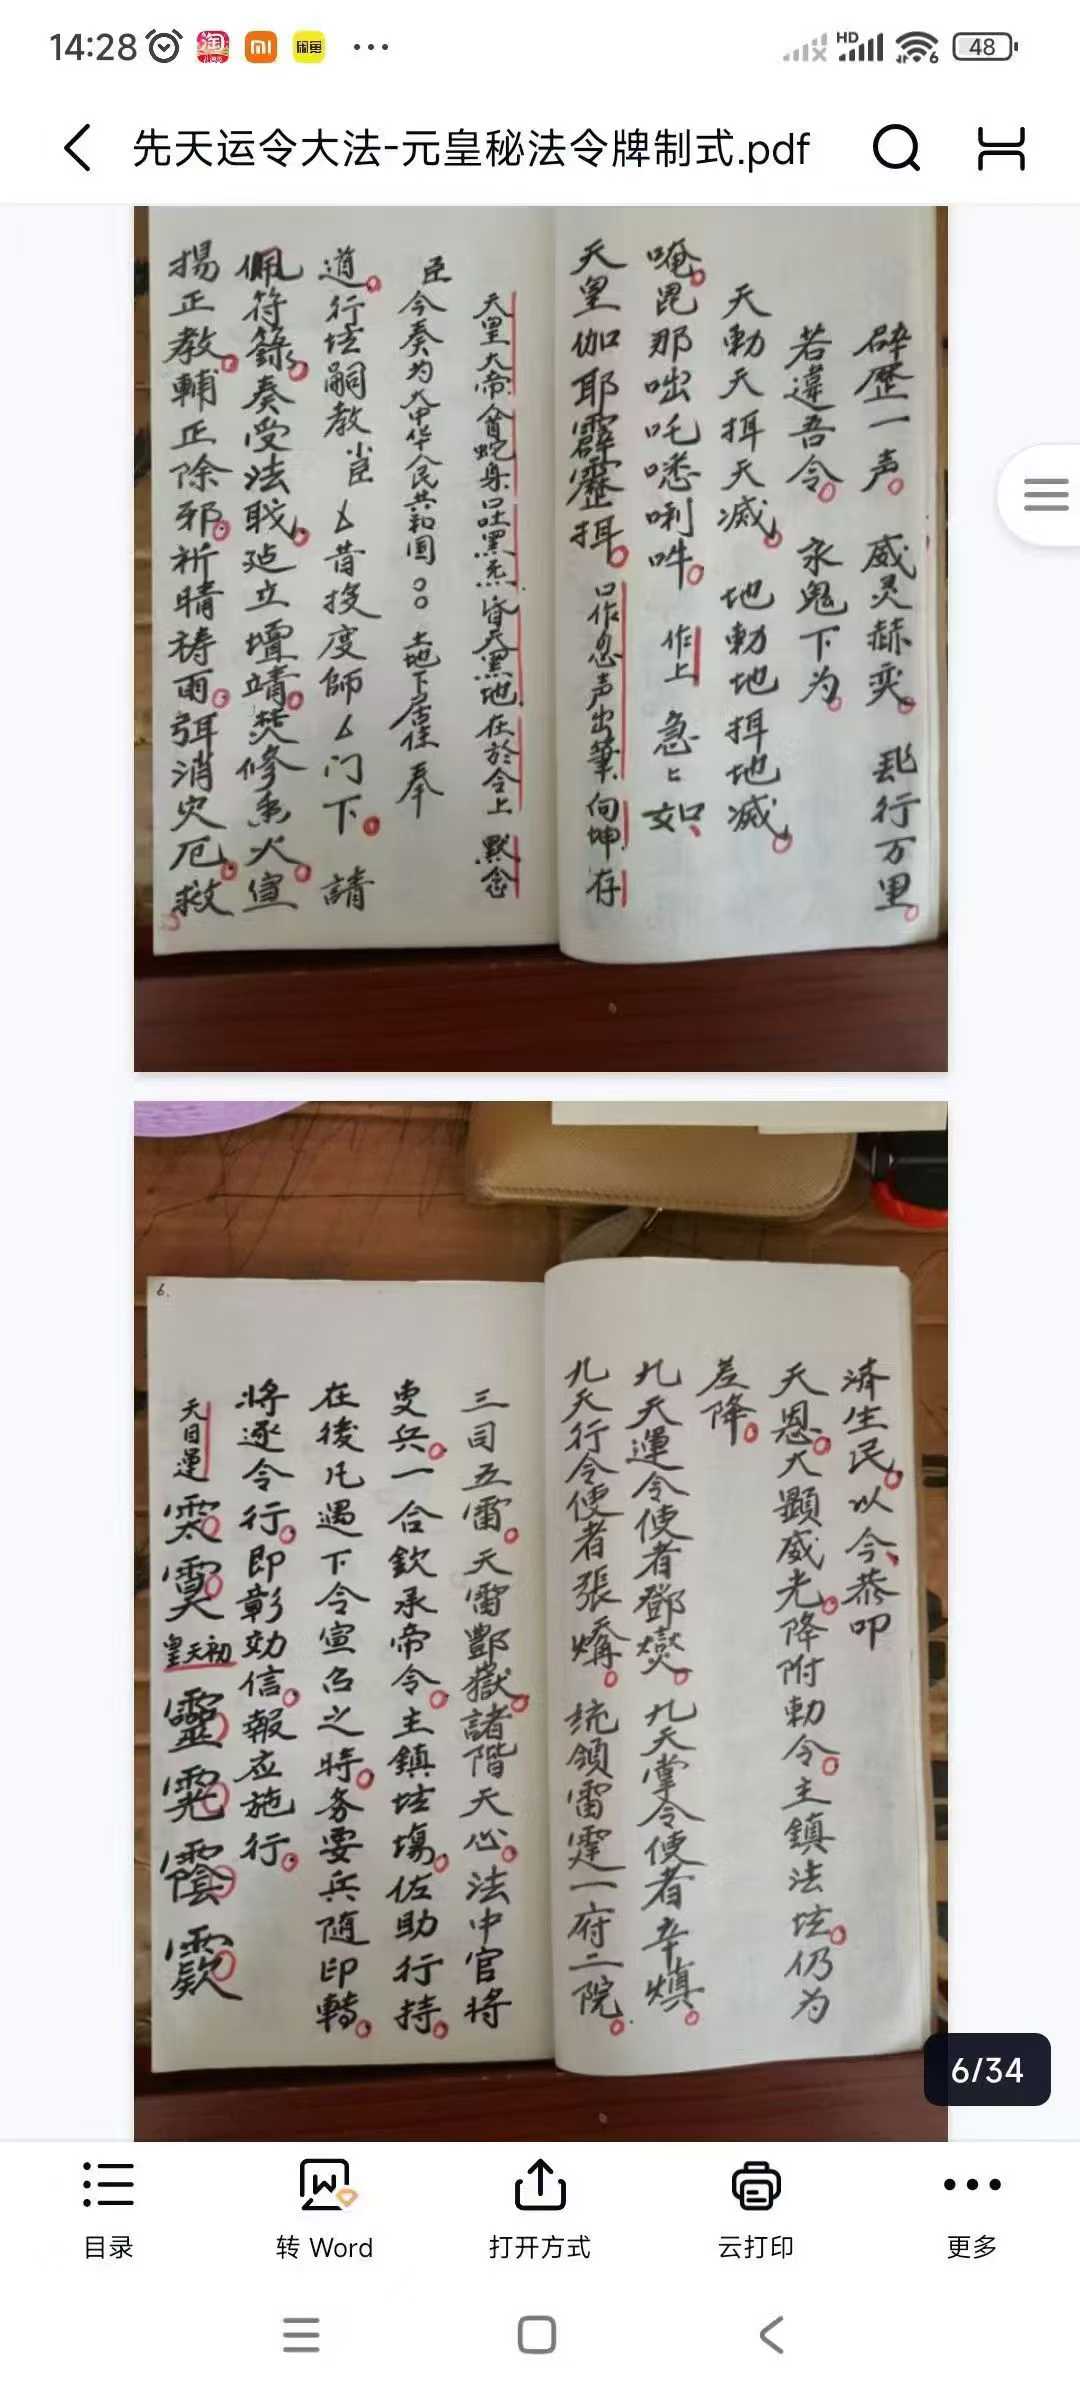 14:28
HD
6
48
先天运令大法-元皇秘法令牌制式.pdf
辟歷一声。威灵赫奕。飛行万里。
若違吾令。永鬼下为。
天勅天揖天滅。地勅地揖地滅。
唵。毘那咄吒嘧唎吽。作上 急〻如
天皇伽耶霹靂揖。口作忽声出筆。向坤。存
天皇大帝人首蛇身口吐黑炁。昏天黑地。在於令上 默念
臣今奏为大中华人民共和国○○土地下居住奉
道。行坛嗣教小臣厶昔投度師厶门下。請
佩符籙。奏受法职。迠立壇靖。焚修香火。宣
揚正教。輔正除邪。祈晴祷雨。弭消灾厄。救
済生民。以今、恭叩
天恩。大顯威光。降附勅令。主鎮法坛。仍为
差降。
九天運令使者鄧燮。九天掌令使者辛慎。
九天行令使者張燐。統領雷霆一府二院。
三司五雷。天雷酆嶽。諸階天心。法中官将
吏兵。一合欽承帝令。主鎮坛場。佐助行持。
在後凡遇下令宣召之時。务要兵随印轉。
将逐令行。即彰効信。報应施行。
6.
天目運 靈 皇天初
6/34
目录
转 Word
打开方式
云打印
更多